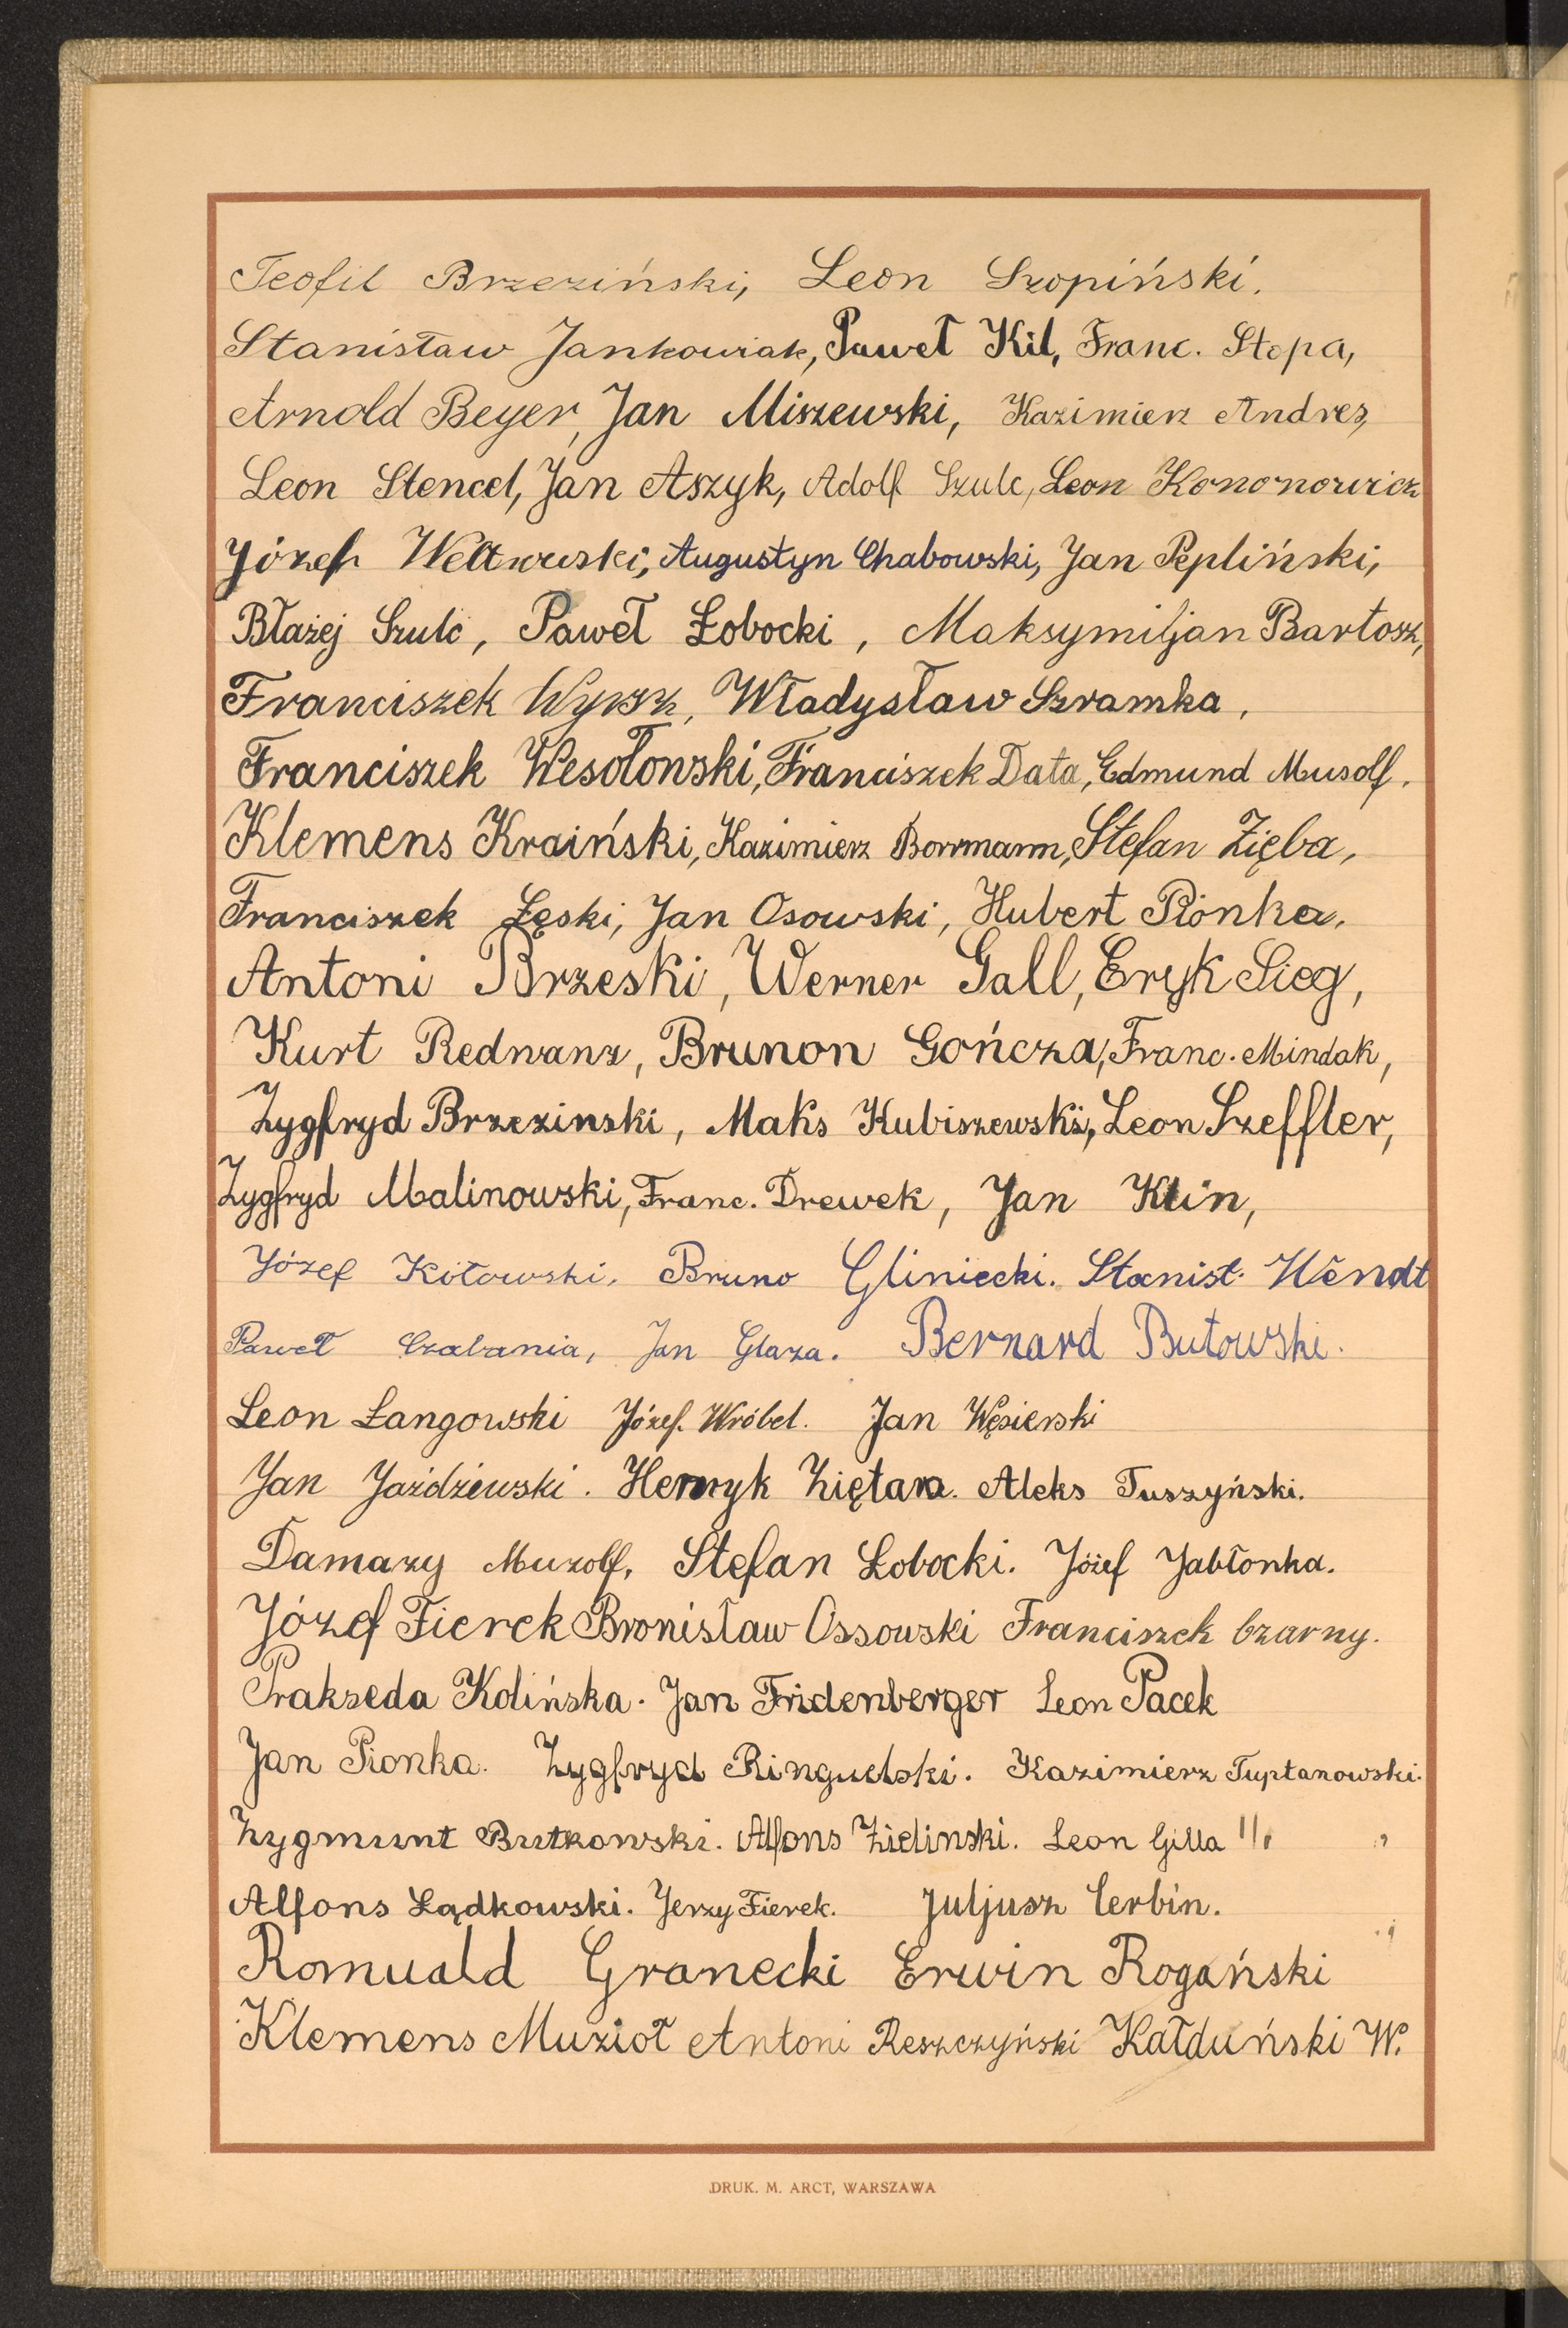 Teofil Brzeziński, Leon Szopiński.
Stanisław Jankowiak, Paweł Kil, Franc. Stopa,
Arnold Beyer, Jan Miszewski, Kazimierz Andres,
Leon Stencel, Jan Aszyk, Adolf Szulc, Leon Kononowicz
Józef Augustyn Chabowski, Jan Pepliński,
Błażej Szulc, Paweł Łobocki, Maksymiljan Bartosz,
Franciszek Władysław Szramka,
Franciszek Wesołowski, Franciszek Data, Edmund Musolf.
Klemens Kraiński, Kazimierz Borrmann, Stefan Zięba,
Franciszek Łęski, Jan Osowski, Hubert Pionka.
Antoni Brzeski, Werner Gall, Eryk Sieg,
Kurt Rednanz, Brunon Gończa, Franc. Mindak,
Zygfryd Brzezinski, Maks Kubiszewski, Leon Szeffler,
Zygfryd Malinowski, Franc. Drewek, Jan Klin,
Józef Kotowski. Bruno Gliniecki. Stanisł. Wendt
Paweł Czabania, Jan Glaza. Bernard Butowski.
Leon Langowski Józef. Wróbel. Jan Węsierski
Jan Jażdżewski. Henryk Ziętara. Aleks Tuszyński.
Damazy Muzolf, Stefan Łobocki. Józef Jabłonka.
Józef Fierek Bronisław Ossowski Franciszek Czarny.
Prakseda Kolińska. Jan Fridenberger Leon Pacek
Jan Pionka. Zygfryd Ringwelski. Kazimierz Tuptanowski.
Zygmunt Butkowski. Alfons Zielinski. Leon Gilla II.
Alfons Lądkowski. Jerzy Fierek. Juljusz Cerbin.
Romuald Granecki Erwin Rogański
Klemens Muzioł Antoni Reszczyński Kałduński W.
DRUK. M. ARCT, WARSZAWA